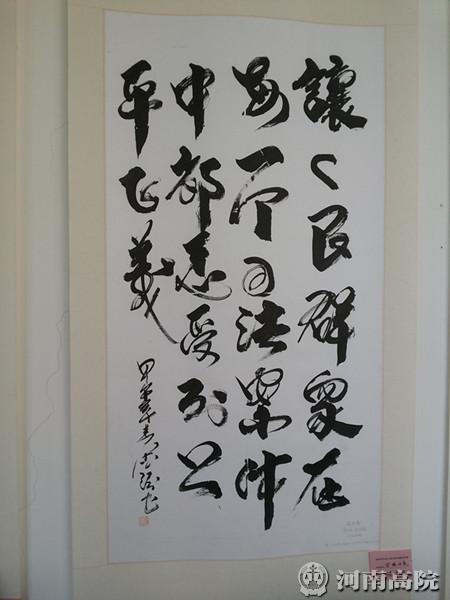 讓人民群衆在
每一个司法案件
中都感受到公
平正義
甲午年春
河南高院